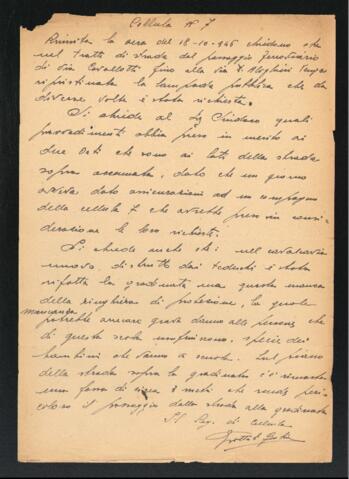 Cellula N 7
Riunita la sera del 18-10-946 chiedono che
nel tratto di strada del passaggio ferroviario
di Via Cavallotti fino alla via D. Alighieri venga
ripristinata la lampada pubblica che da
diverse volte è stata richiesta.
Si chiede al Sig Sindaco quali
provvedimenti abbia preso in merito ai
due Orti che sono ai lati della strada
sopra accennata, dato che un giorno
aveva dato assicurazioni ad un compagno
della cellula 7 che avrebbe preso in consi-
derazione le loro richieste.
Si chiede anche che: nel cavalcavia
nuovo distrutto dai tedeschi è stata
rifatta la gradinata ma questa manca
della ringhiera di protezione, la quale
mancanza
potrebbe arrecare gravi danni alle persone che
di questa scala usufruiscono, specie dei
bambini che vanno a scuola. Sul piano
della strada sopra la gradinata c'è rimasta
una fossa di circa 2 metri che rende peri-
coloso il passaggio dalla strada alla gradinata
Il Seg. di cellula